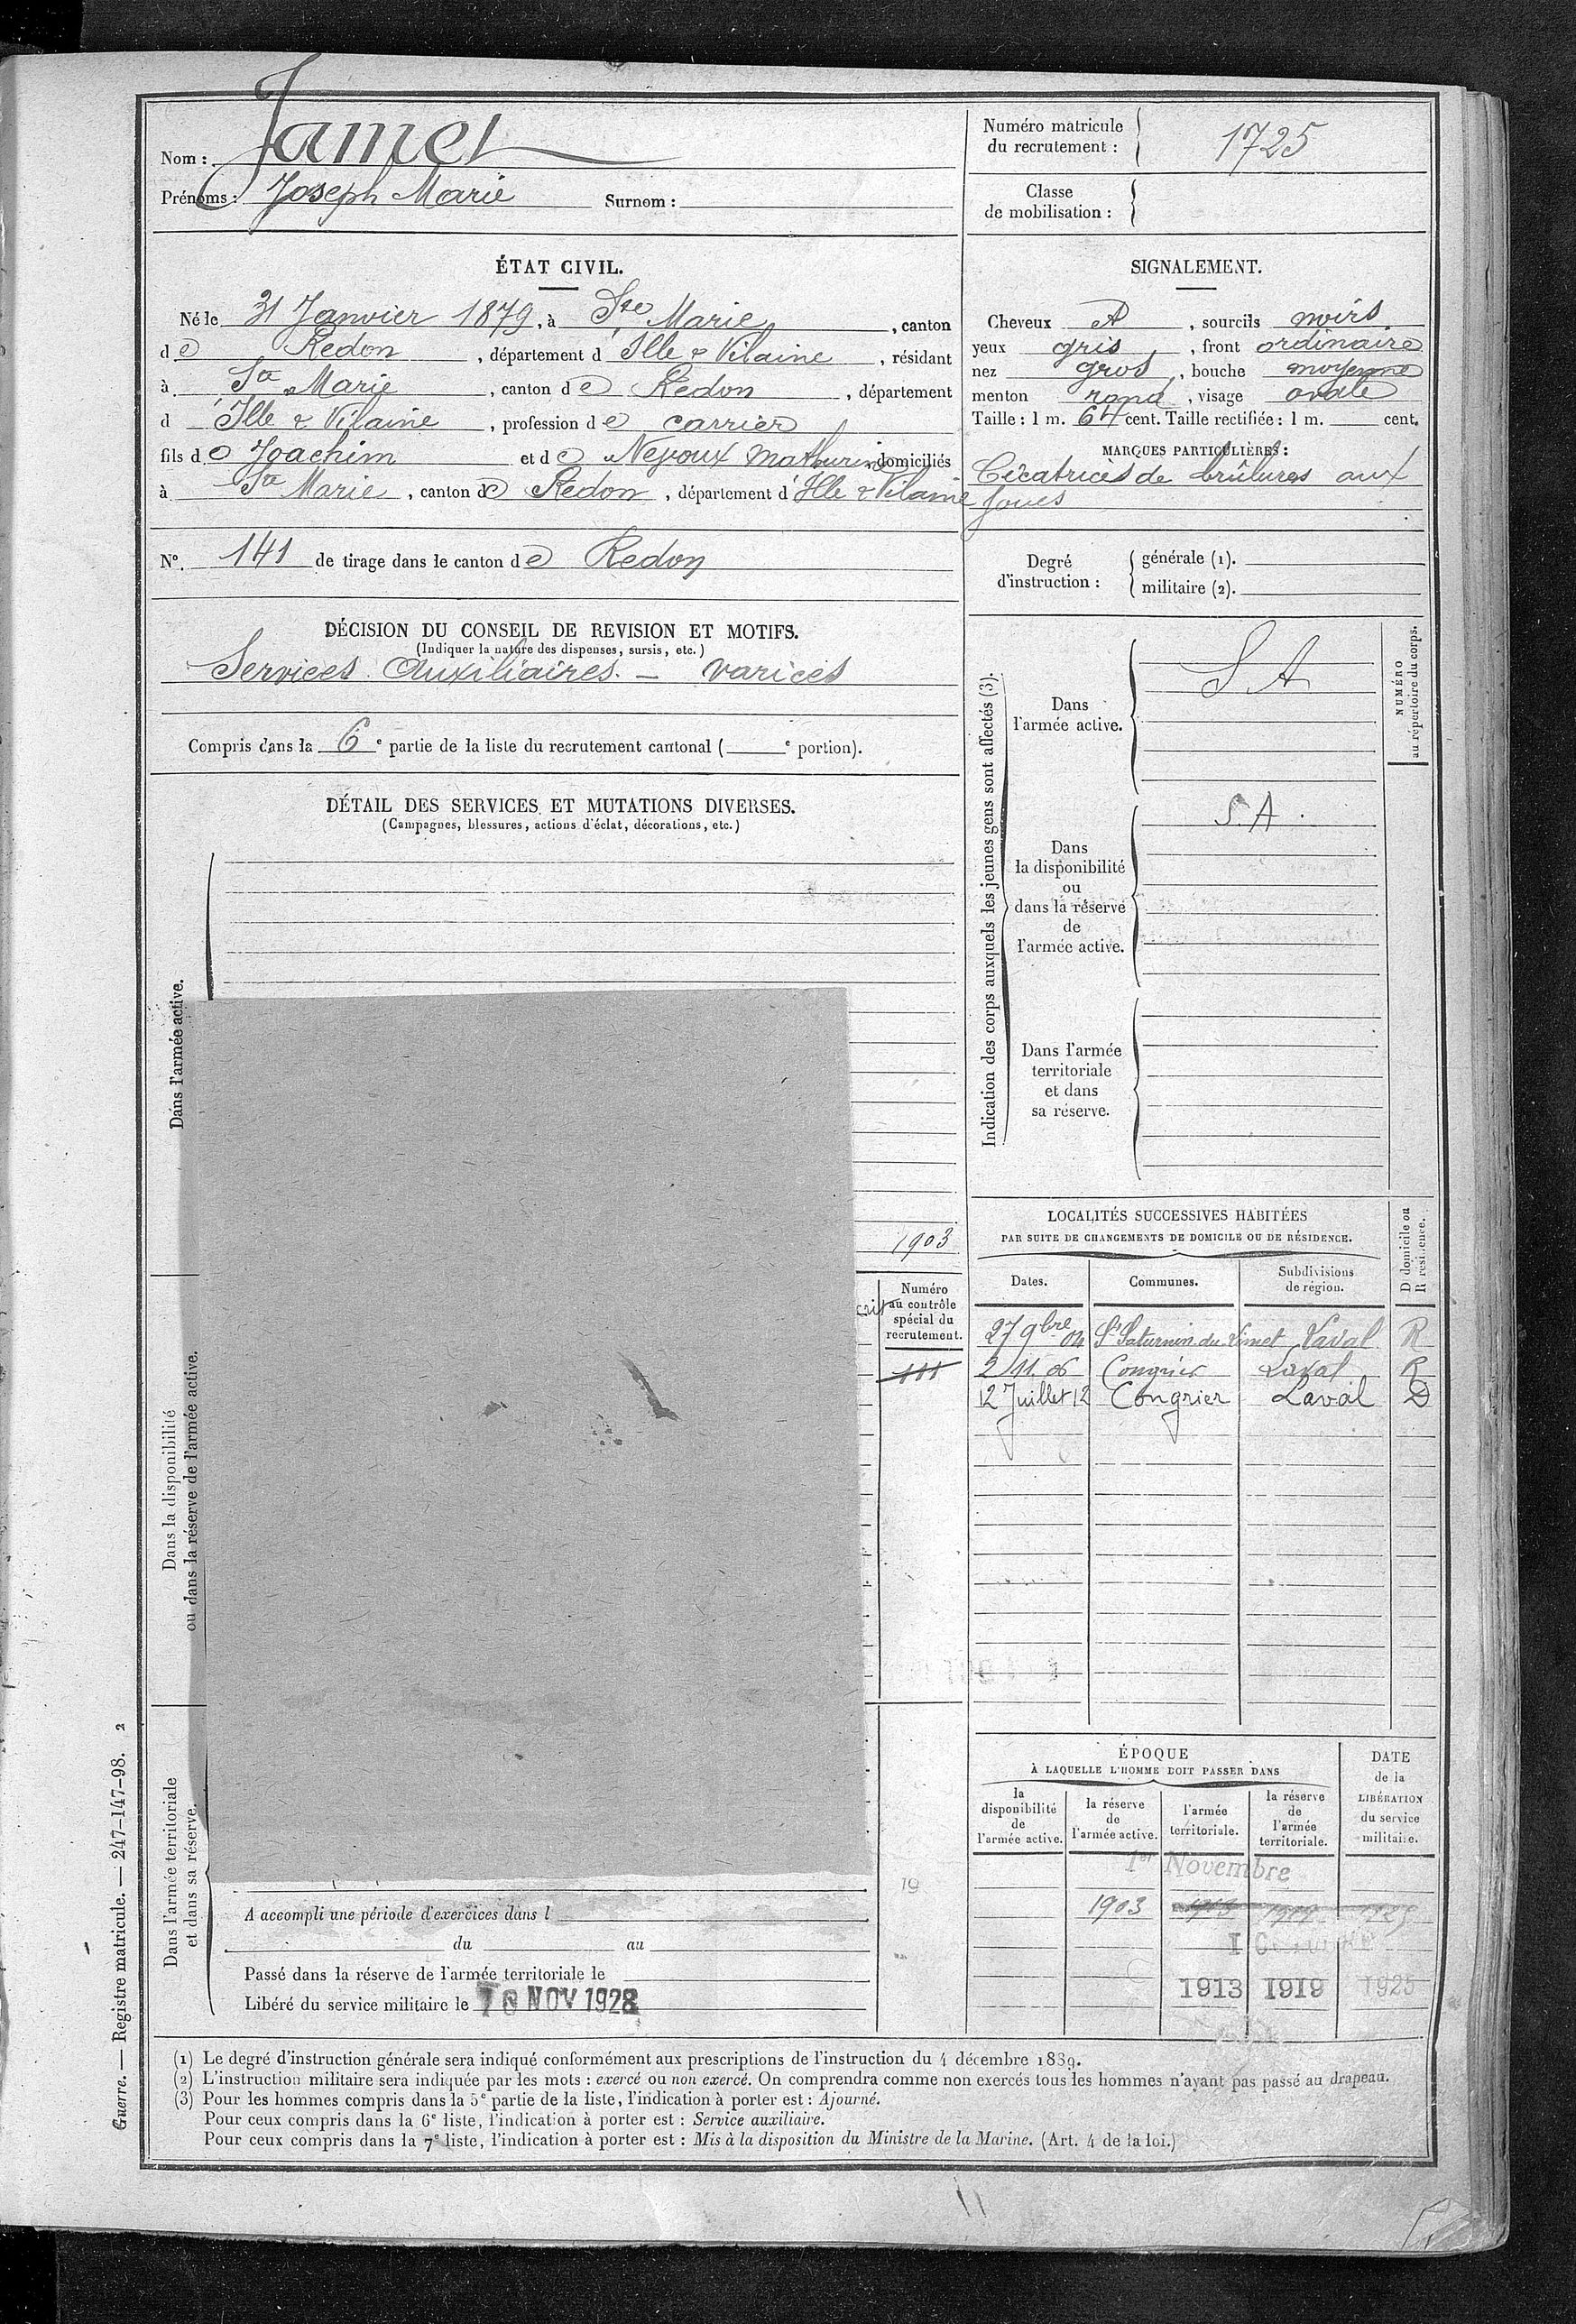 Nom : Jamet
Prénoms : Joseph Marie Surnom :
Numéro matricule du recrutement : 1725
Classe de mobilisation :
ÉTAT CIVIL.
Né le 31 Janvier 1879, à Ste Marie, canton
de Redon, département d'Ille & Vilaine, résidant
à Ste Marie, canton de Redon, département
d'Ille & Vilaine, profession de carrier
fils de Joachim et de Mathurine domiciliés
à Ste Marie, canton de Redon, département d'Ille & Vilaine
N° 141 de tirage dans le canton de Redon
SIGNALEMENT.
Cheveux et, sourcils noirs
yeux gris, front ordinaire
nez gros, bouche moyenne
menton rond, visage ovale
Taille : 1 m. 64 cent. Taille rectifiée : 1 m. cent.
MARQUES PARTICULIÈRES :
Cicatrices de brûlures aux
joues
Degré d'instruction : générale (1).
militaire (2).
DÉCISION DU CONSEIL DE REVISION ET MOTIFS.
(Indiquer la nature des dispenses, sursis, etc.)
Services Auxiliaires. — varices
Compris dans la 6e partie de la liste du recrutement cantonal ( e portion).
DÉTAIL DES SERVICES ET MUTATIONS DIVERSES.
(Campagnes, blessures, actions d'éclat, décorations, etc.)
Dans l'armée active.
1903
Dans la disponibilité
ou dans la réserve de l'armée active.
Numéro
au contrôle
spécial du
recrutement.
Dans l'armée territoriale
et dans sa réserve.
19
A accompli une période d'exercices dans l
du au
Passé dans la réserve de l'armée territoriale le
Libéré du service militaire le 10 NOV 1928
Indication des corps auxquels les jeunes gens sont affectés (3).
NUMÉRO
au répertoire du corps.
Dans
l'armée active.
S A
Dans
la disponibilité
ou
dans la réserve
de
l'armée active.
S.A.
Dans l'armée
territoriale
et dans
sa réserve.
LOCALITÉS SUCCESSIVES HABITÉES
PAR SUITE DE CHANGEMENTS DE DOMICILE OU DE RÉSIDENCE.
D domicile ou
R résidence.
Dates. Communes. Subdivisions de région.
27 9bre 04 St Saturnin du Limet Laval R
2 11. 06 Congrier Laval R
12 Juillet 12 Congrier Laval D
ÉPOQUE
À LAQUELLE L'HOMME DOIT PASSER DANS
la disponibilité de l'armée active.
la réserve de l'armée active.
l'armée territoriale.
la réserve de l'armée territoriale.
DATE
de la
LIBÉRATION
du service
militaire.
1er Novembre
1903
1913 1919 1925
(1) Le degré d'instruction générale sera indiqué conformément aux prescriptions de l'instruction du 4 décembre 1889.
(2) L'instruction militaire sera indiquée par les mots : exercé ou non exercé. On comprendra comme non exercés tous les hommes n'ayant pas passé au drapeau.
(3) Pour les hommes compris dans la 5e partie de la liste, l'indication à porter est : Ajourné.
Pour ceux compris dans la 6e liste, l'indication à porter est : Service auxiliaire.
Pour ceux compris dans la 7e liste, l'indication à porter est : Mis à la disposition du Ministre de la Marine. (Art. 4 de la loi.)
Guerre. — Registre matricule. — 247-147-98. 2